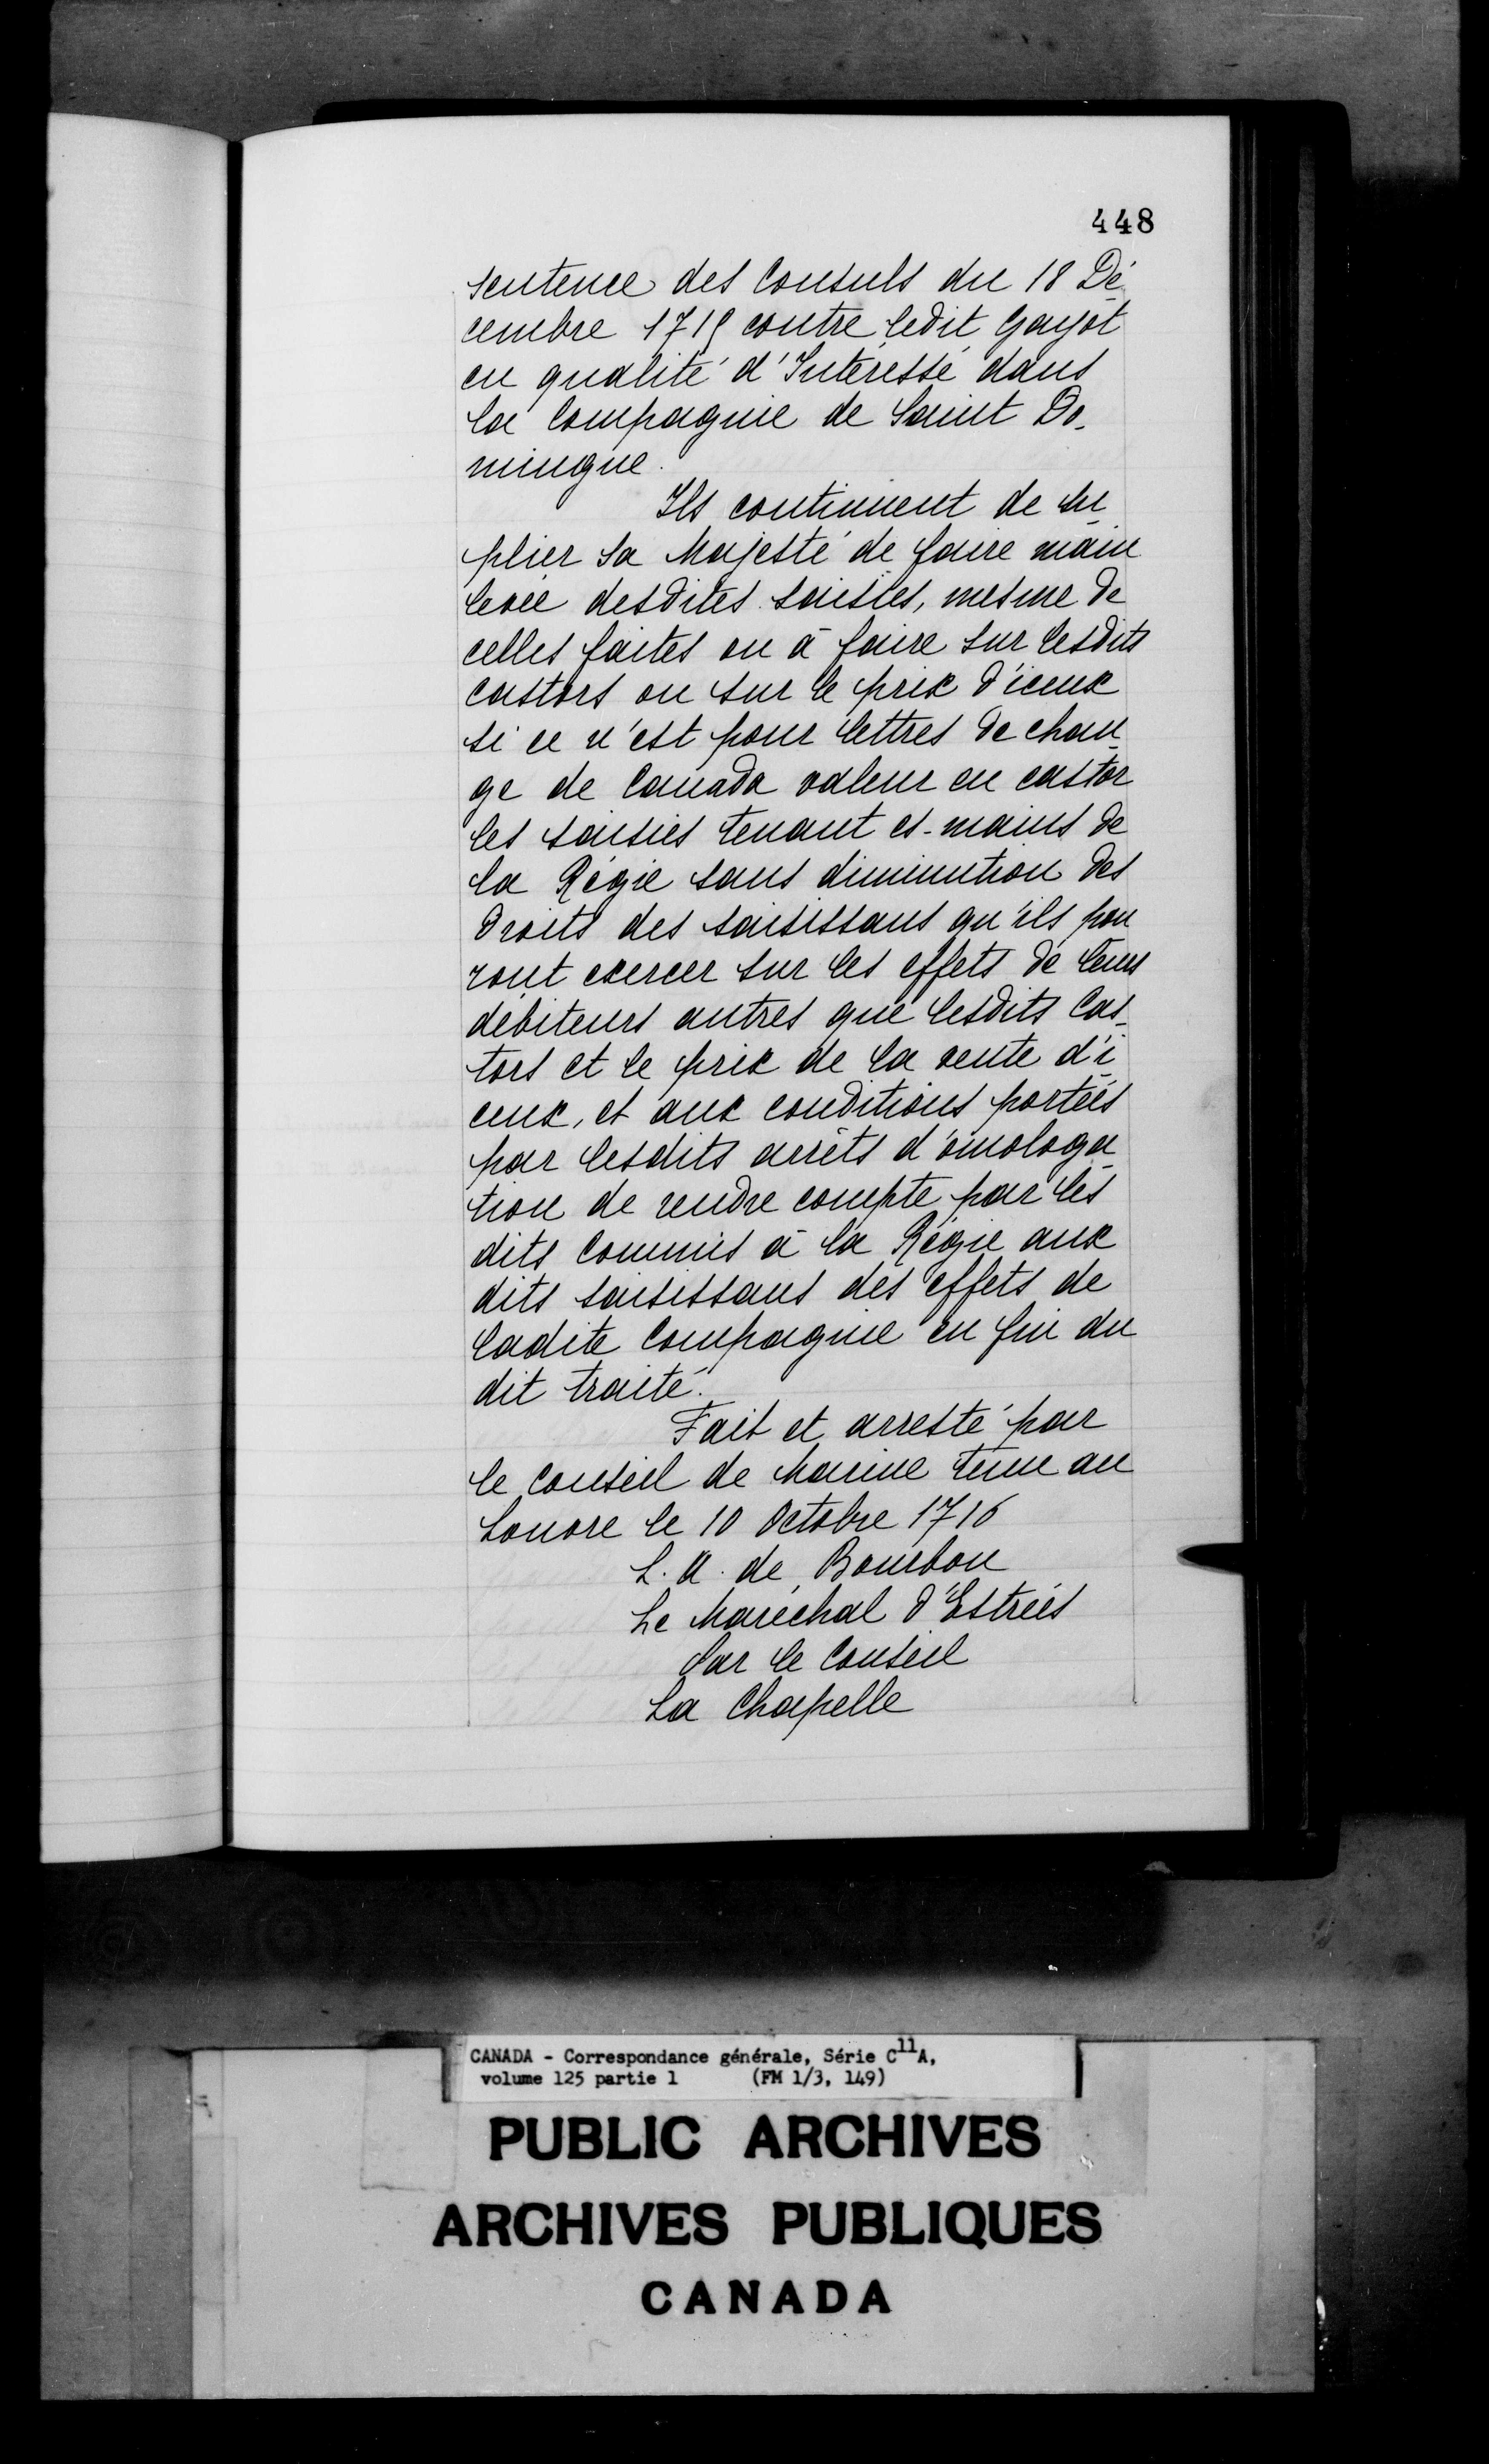 448
sentence des Consuls du 18 Dé-
cembre 1715 contre ledit Gayot
en qualité d'Intéressé dans
la Compagnie de Saint Do-
mingue.
Ils continuent de su-
plier Sa Majesté de faire main
levée desdites saisies, mesme de
celles faites ou à faire sur lesdits
castors ou sur le prix d'iceux
si ce n'est pour lettres de chan-
ge de Canada valeur en castor
les saisies tenant es-mains de
la Régie sans diminution des
droits des saisissans qu'ils pou
ront exercer sur les effets de leurs
débiteurs autres que lesdits Cas-
tors et le prix de la vente d'i-
ceux, et aux conditions portées
par lesdits arrêts d'omologa-
tion de rendre compte par les
dits Commis à la Régie aux
dits saisissans des effets de
ladite Compagnie en fin du
dit traité.
Fait et arresté par
le Conseil de Marine tenu au
Louvre le 10 Octobre 1716
L. A. de Bourbon
Le Maréchal d'Estrées
Par le Conseil
La Chapelle
CANADA - Correspondance générale, Série C11A,
volume 125 partie 1 (FM 1/3, 149)
PUBLIC ARCHIVES
ARCHIVES PUBLIQUES
CANADA